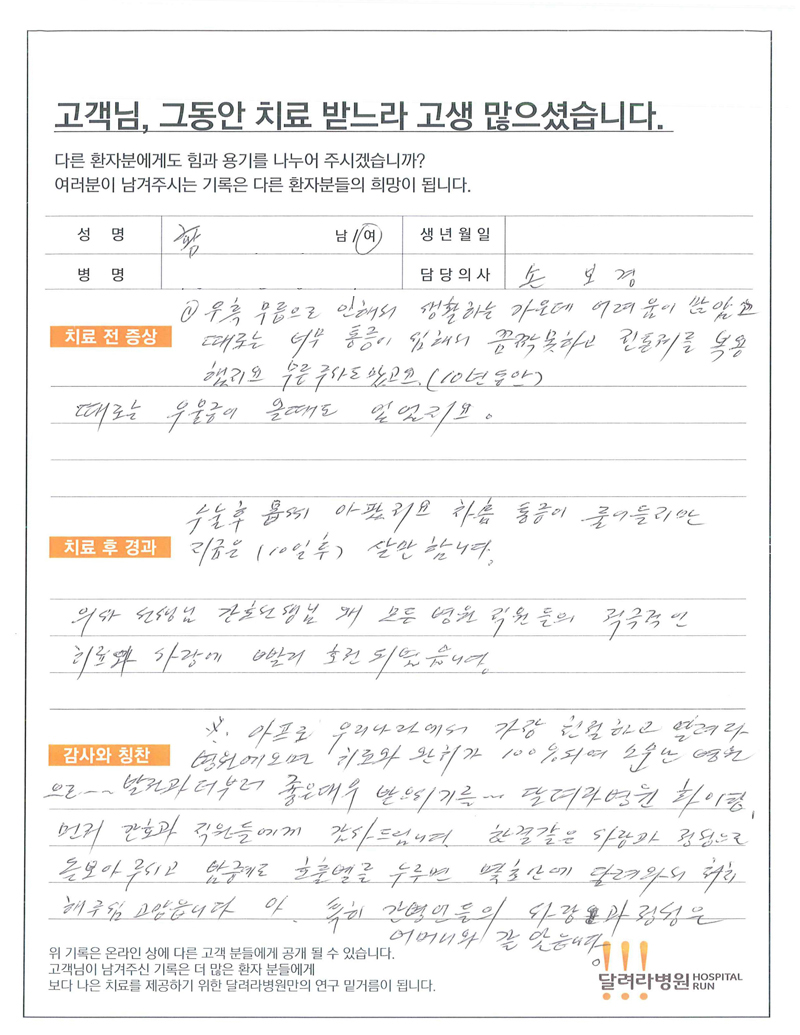 고객님, 그동안 치료 받느라 고생 많으셨습니다.
다른 환자분에게도 힘과 용기를 나누어 주시겠습니까?
여러분이 남겨주시는 기록은 다른 환자분들의 희망이 됩니다.
성 명 함 남/여 생년월일
병 명 담당의사 손보경
우측 무릎으로 인해서 생활하는 가운데 어려움이 많았고
치료 전 증상 때로는 너무 통증이 심해서 꼼짝못하고 진통제를 복용
했지요 무릎주사도 맞고요. (10년동안)
때로는 우울증이 올때도 있었지요.
수술후 몹씨 아팠지요 차츰 통증이 줄어들지만
치료 후 경과 지금은 (10일후) 살만합니다.
의사 선생님 간호선생님 모든 병원 직원들의 적극적인
치료와 사랑에 빨리 호전되었습니다.
※. 아프로 우리나라에서 가장 친절하고 달려라
감사와 칭찬 병원에오면 치료와 완치가 100%되여 소문난 병원
으로~~ 발전과 더부러 좋은대우 받으시기를~~ 달려라병원 화이팅.
먼저 간호과 직원들에게 감사드립니다. 한결같은 사랑과 정성으로
돌보아주시고 밤중에도 호출벨를 누루면 달려와서
해주심 고맙습니다 아. 특히 간병인들의 사랑과정성은
어머니와 같았습니다.
위 기록은 온라인 상에 다른 고객 분들에게 공개 될 수 있습니다.
고객님이 남겨주신 기록은 더 많은 환자 분들에게
보다 나은 치료를 제공하기 위한 달려라병원만의 연구 밑거름이 됩니다.
달려라병원 HOSPITAL RUN